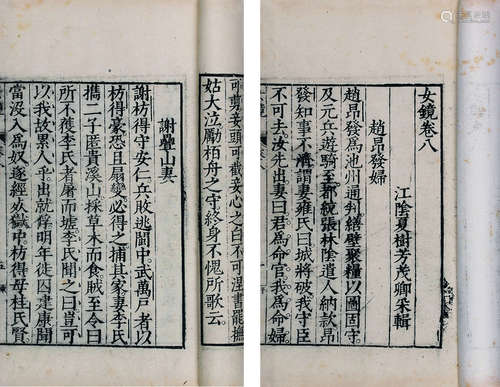 女鏡卷八
江陰夏樹芳茂卿采輯
趙昂發婦
趙昂發爲池州通判繕壁聚糧以圖固守
及元兵遊騎至郡統張林陰遣人納款昂
發知事不濟謂妻雍氏曰城將破我守臣
不可去汝先出妻曰君爲命官我爲命婦
可剪妾頭可截妾心之白不可湼書罷撫
姑大泣勵栢舟之守終身不愧所歌云
謝疊山妻
謝枋得守安仁兵敗逃閩中武萬戶者以
枋得豪恐且扇變必得之捕其家妻李氏
攜二子匿貴溪山採草木而食賊至令曰
所不獲李氏者屠而墟李氏聞之曰豈可
以我故累人乎出就俘明年徙囚建康聞
當沒入爲奴遂經於獄中枋得母杜氏賢